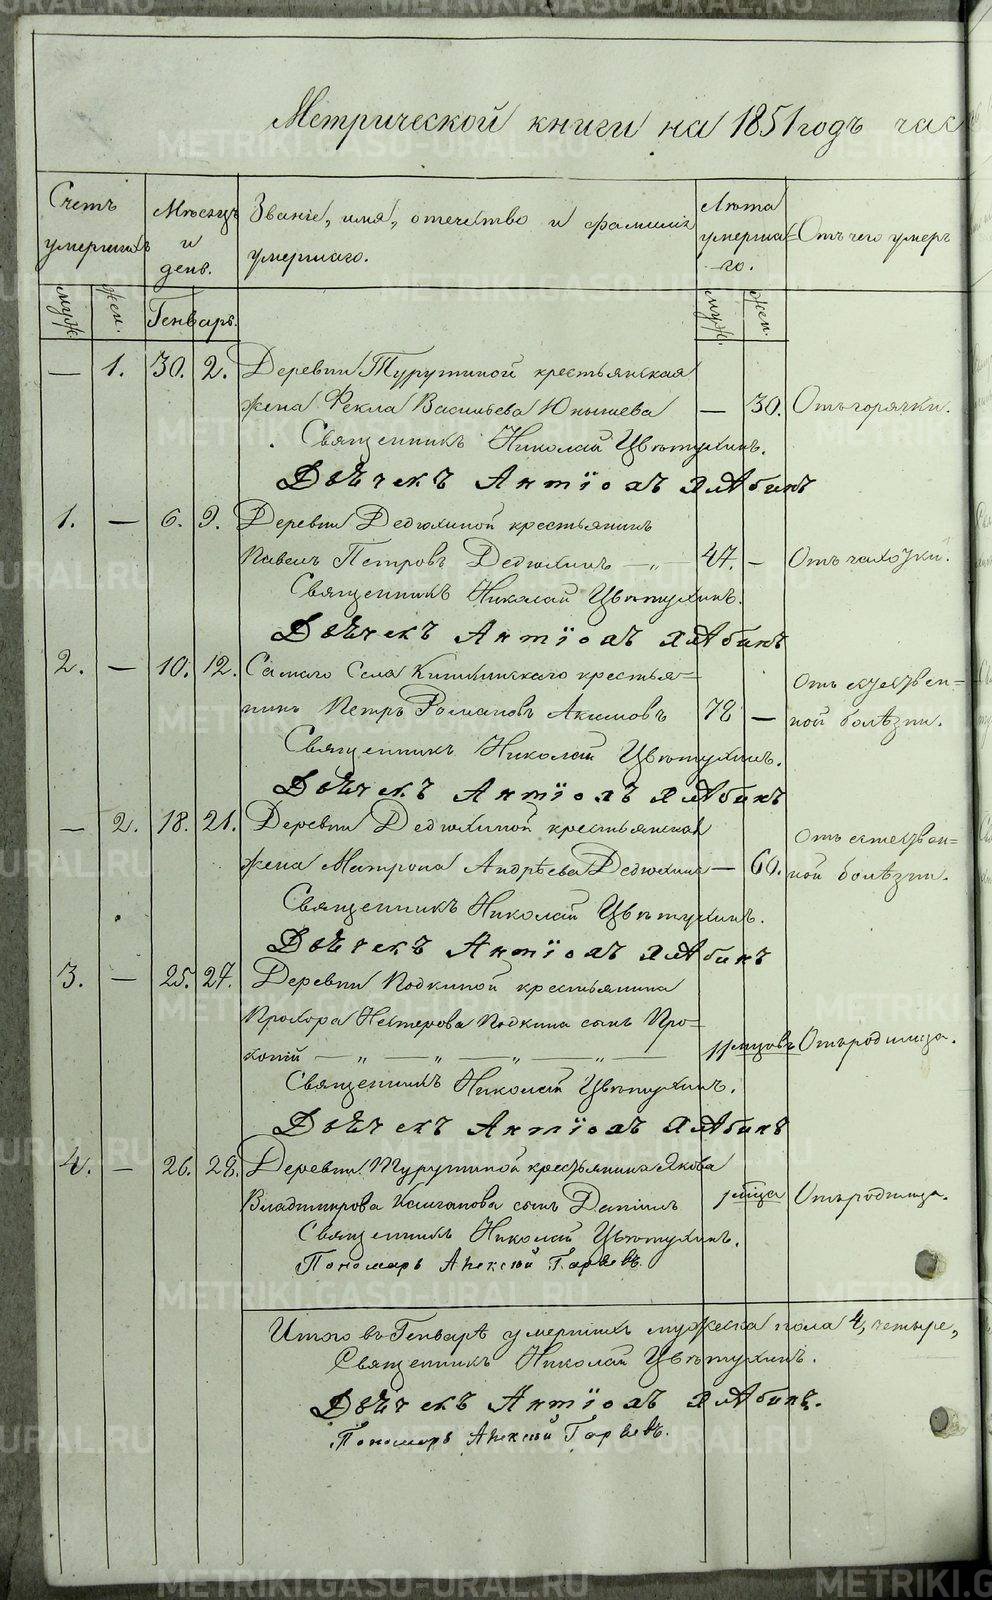 Метрической книги на 1851 годъ час
Счетъ умершихъ
Мѣсяцъ и день.
Званіе, имя, отечество и фамилія умершаго.
Лѣта умерша-го.
Отъ чего умеръ
муж. жен. Генварь. муж. жен.
— 1. 30. 2. Деревни Турутиной крестьянская
жена Фекла Васильева — 30. Отъ горячки.
Священникъ Николай Цвѣтухинъ.
Дьячекъ Антіохъ
1. — 6. 9. Деревни Дедюхиной крестьянинъ
Павелъ Петровъ Дедюхинъ — „ — 47. — Отъ чахотки.
Священникъ Николай Цвѣтухинъ.
Дьячекъ Антіохъ
2. — 10. 12. Самаго Села крестья=
нинъ Петръ Романовъ Акимовъ 78 — Отъ естествен=ной болѣзни.
Священникъ Николай Цвѣтухинъ.
Дьячекъ Антіохъ
— 2. 18. 21. Деревни Дедюхиной крестьянская
жена Матрона Андрѣева Дедюхина — 60. Отъ естествен=ной болѣзни.
Священникъ Николай Цвѣтухинъ.
Дьячекъ Антіохъ
3. — 25. 27. Деревни Подкиной крестьянина
Прохора Нестерова Подкина сынъ Про=
копій — „ — „ — „ — „ — 11 мцовъ Отъ родимца.
Священникъ Николай Цвѣтухинъ.
Дьячекъ Антіохъ
4. — 26. 28. Деревни Турутиной крестьянина Якова
Владимірова сынъ Даніилъ 1 мца Отъ родимца.
Священникъ Николай Цвѣтухинъ.
Пономарь Алексій
Итого въ Генварѣ умершихъ мужеска пола 4, четыре,
Священникъ Николай Цвѣтухинъ.
Дьячекъ Антіохъ
Пономарь Алексій
METRIKI.GASO-URAL.RU